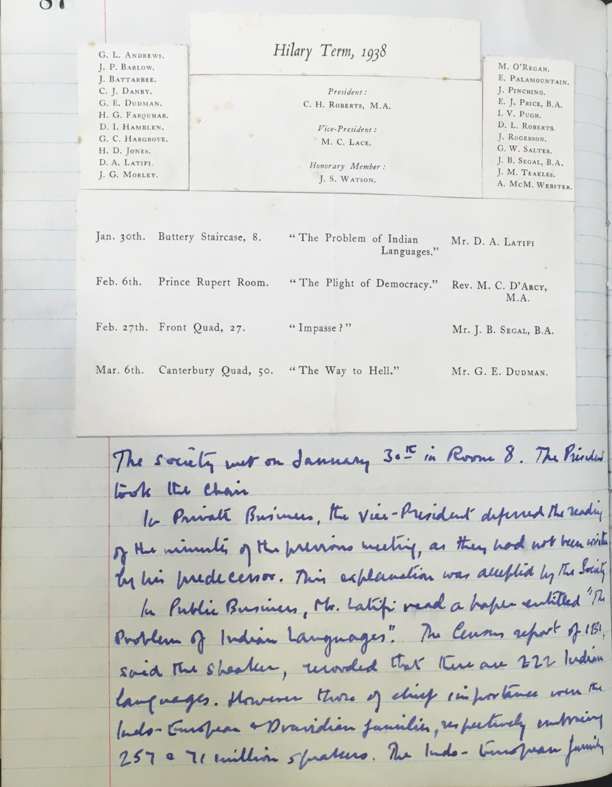 87
Hilary Term, 1938
G. L. Andrews.
J. P. Barlow.
J. Battarbee.
C. J. Danby.
G. E. Dudman.
H. G. Farquhar.
D. I. Hamblen.
G. C. Hargrove.
H. D. Jones.
D. A. Latifi.
J. G. Morley.
President:
C. H. Roberts, M.A.
Vice-President:
M. C. Lace.
Honorary Member:
J. S. Watson.
M. O'Regan.
E. Palamountain.
J. Pinching.
E. J. Price, B.A.
I. V. Pugh.
D. L. Roberts.
J. Rogerson.
G. W. Salter.
J. B. Segal, B.A.
J. M. Teakles.
A. McM. Webster.
Jan. 30th. Buttery Staircase, 8. "The Problem of Indian Languages." Mr. D. A. Latifi
Feb. 6th. Prince Rupert Room. "The Plight of Democracy." Rev. M. C. D'Arcy, M.A.
Feb. 27th. Front Quad, 27. "Impasse?" Mr. J. B. Segal, B.A.
Mar. 6th. Canterbury Quad, 50. "The Way to Hell." Mr. G. E. Dudman.
The society met on January 30th in Room 8. The President
took the Chair
In Private Business, the Vice-President deferred the reading
of the minutes of the previous meeting, as they had not been written
by his predecessor. This explanation was accepted by the Society
In Public Business, Mr. Latifi read a paper entitled "The
Problem of Indian Languages". The Census report of
said the speaker, recorded that there are 222 Indian
languages. However those of chief importance were the
Indo-European & Dravidian families, respectively embracing
257 & 71 million speakers. The Indo-European family